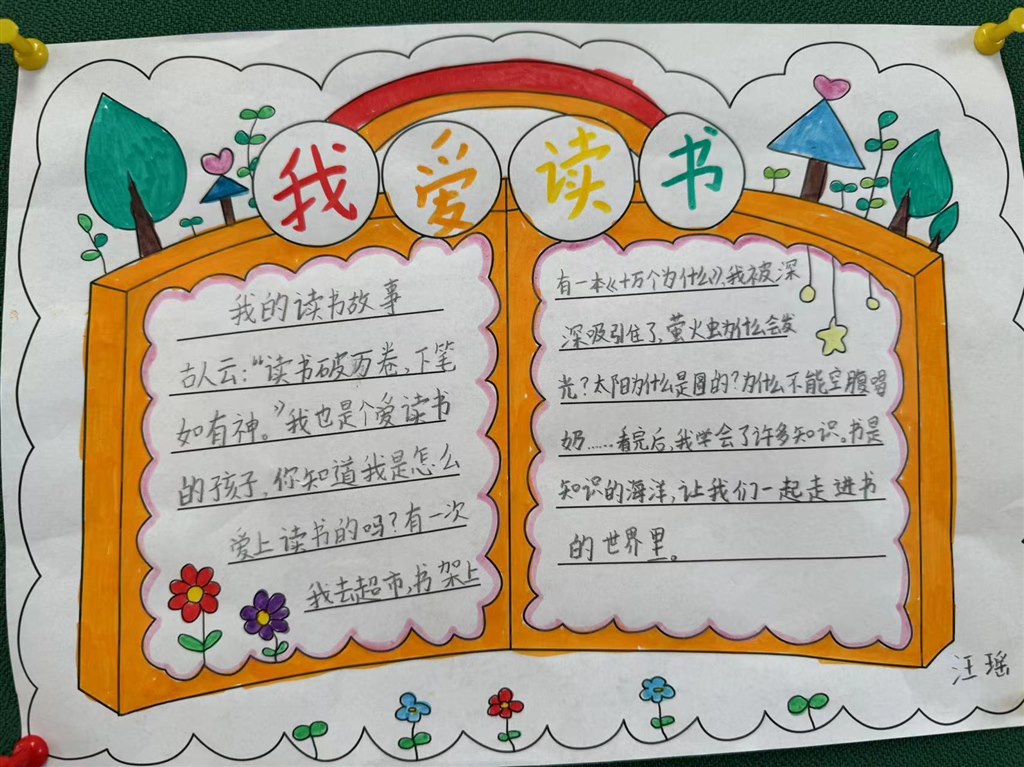 我爱读书
我的读书故事
古人云：“读书破万卷，下笔
如有神。”我也是个爱读书
的孩子，你知道我是怎么
爱上读书的吗？有一次
我去超市，书架上
有一本《十万个为什么》，我被深
深吸引住了，萤火虫为什么会发
光？太阳为什么是圆的？为什么不能空腹喝
奶……看完后，我学会了许多知识。书是
知识的海洋，让我们一起走进书
的世界里。
汪瑶